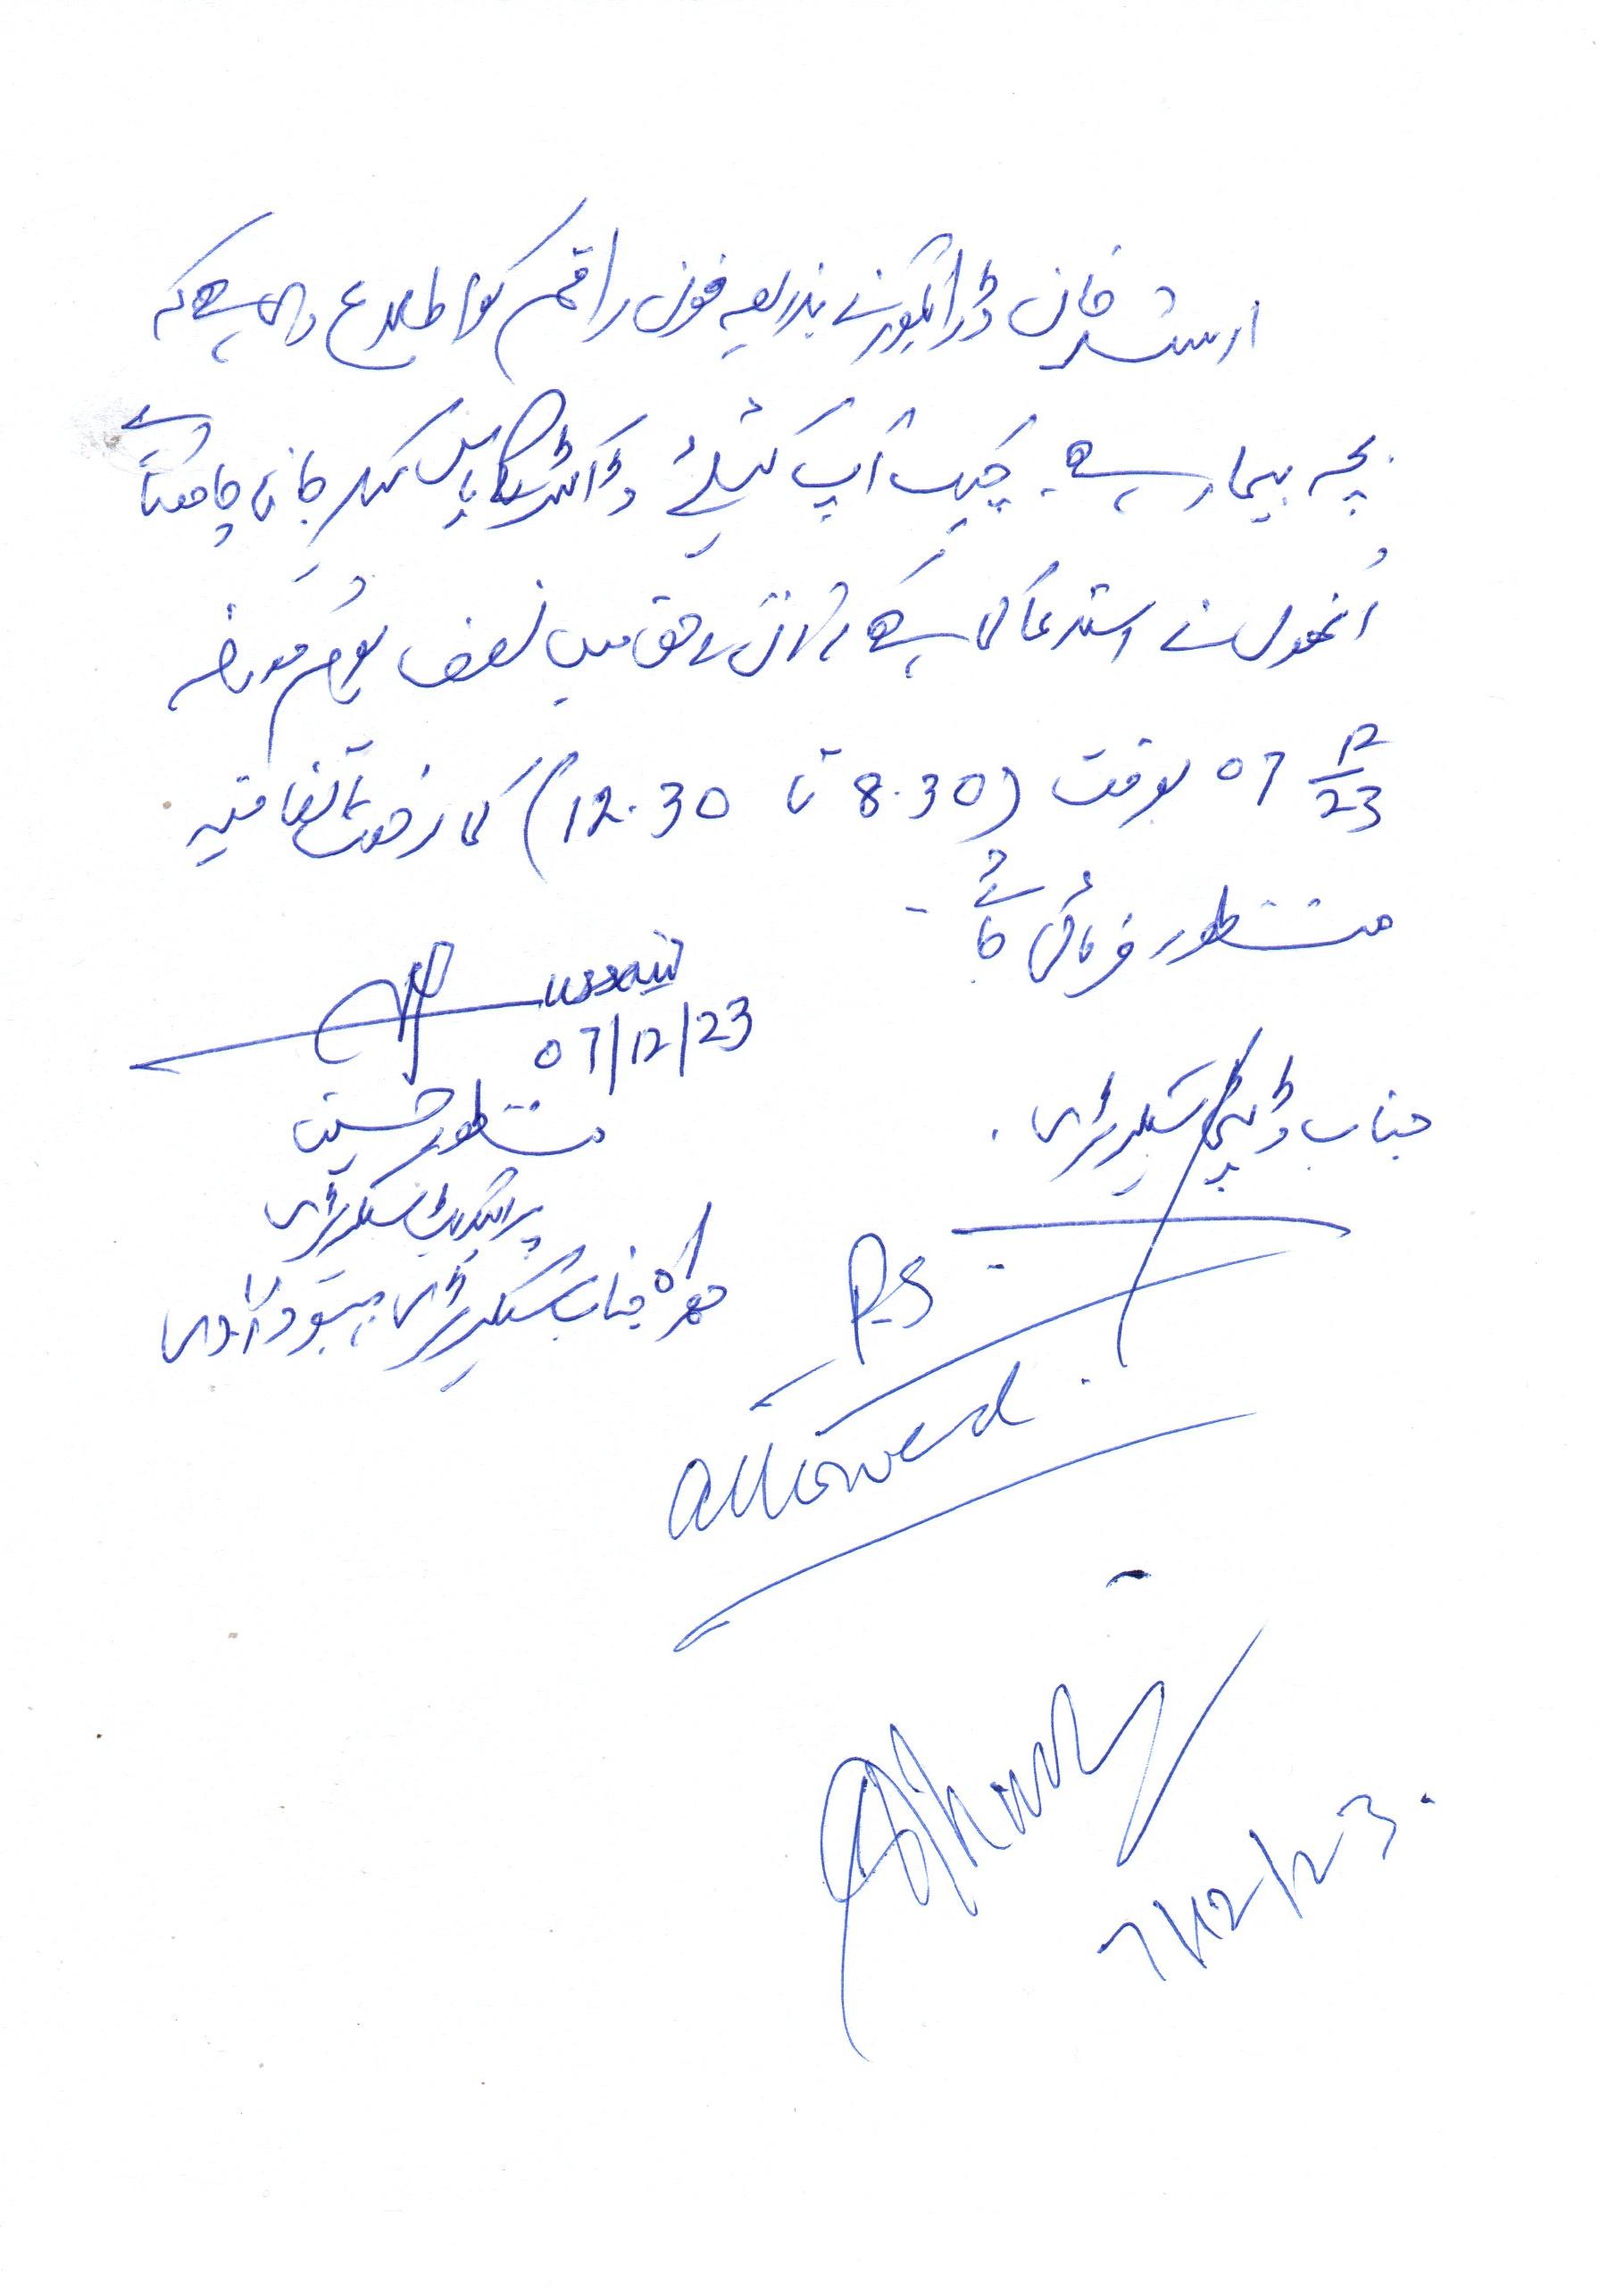 ارشد خان ڈرائیور نے بذریعہ فون راقم کو اطلاع دی ہے کہ
بچہ بیمار ہے۔ چیک اپ کیلئے ڈاکٹر کے پاس لیکر جانا چاہتا ہے
اُنھوں نے استدعا کی ہے کہ ان کے حق میں نصف یوم مورخہ
07 12/23 بوقت (8.30 تا 12.30) کی رخصت اتفاقیہ
منظور فرمائی جائے۔
07/12/23
منظور حسین
پرائیویٹ سیکریٹری
ہمراہ جناب سیکریٹری بہبود آبادی
جناب ڈپٹی سیکریٹری
P.S
allowed
7/12/23.